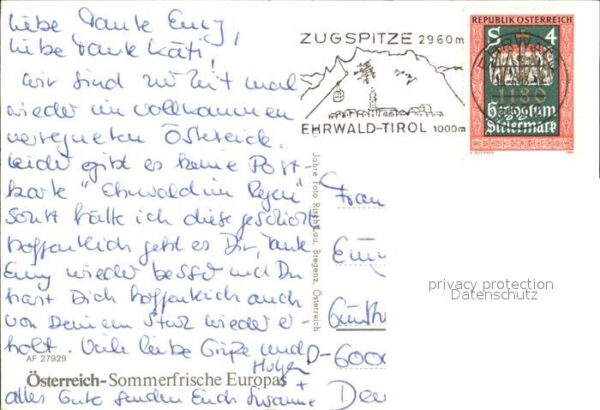 Liebe Tante Emy,
liebe Tante Käti!
Wir sind zur Zeit mal
wieder im vollkommen
verregneten Österreich.
Leider gibt es keine Post-
karte "Ehrwald im Regen"
sonst hätte ich diese geschickt.
Hoffentlich geht es Dir, Tante
Emy wieder besser und Du
hast Dich hoffentlich auch
von Deinem Sturz wieder er-
holt. Viele liebe Grüße und
alles Gute senden Euch Susanne +
Holger
AF 27929
Österreich-Sommerfrische Europas
ZUGSPITZE 2960m
EHRWALD-TIROL 1000m
REPUBLIK ÖSTERREICH
S 4
1180
Steiermark
Bregenz, Österreich
Frau
Emy
D-6000
privacy protection
Datenschutz